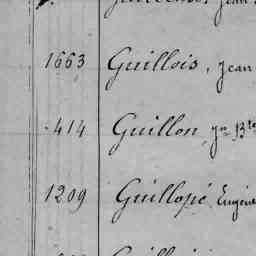 1663 Guillois, Jean
414 Guillon, Jn Bte
1209 Guillopé, Eugène